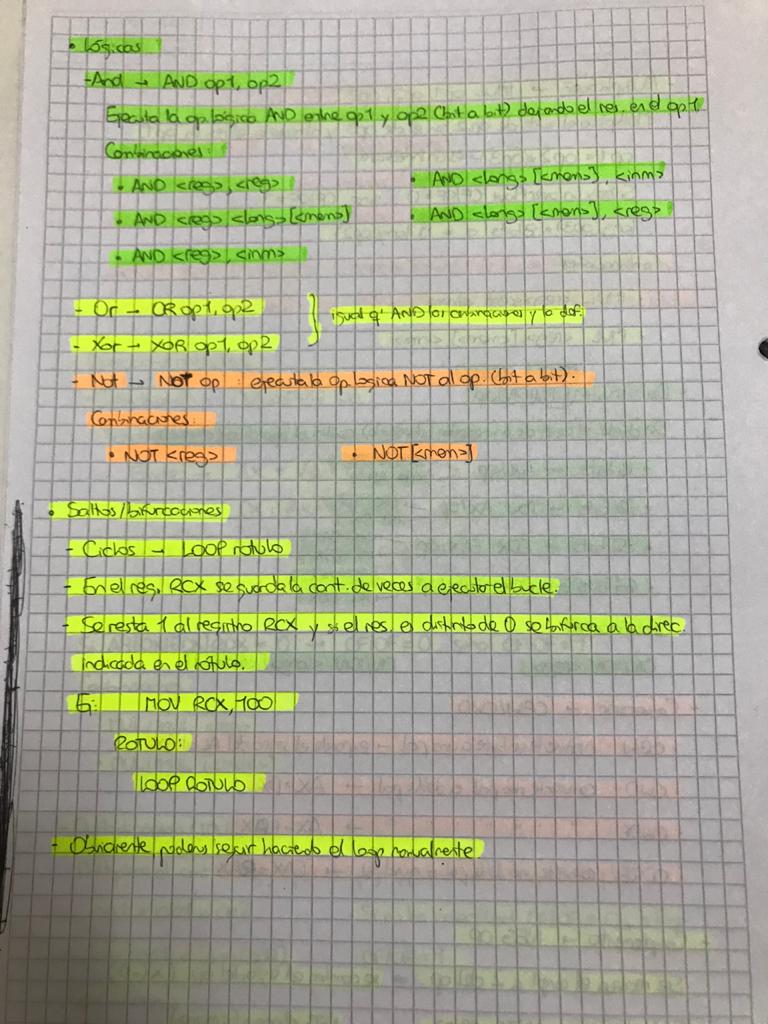 • Lógicas
-And → AND op1, op2
Ejecuta la op. lógica AND entre op1 y op2 (bit a bit) dejando el res. en el op1
Combinaciones:
• AND <reg>, <reg>
• AND <long> [<mem>], <inm>
• AND <reg> <long> [<mem>]
• AND <long> [<mem>], <reg>
• AND <reg>, <inm>
- Or → OR op1, op2 } igual q' AND las combinaciones y la def.
- Xor → XOR op1, op2
- Not → NOT op : ejecuta la op. logica NOT al op. (bit a bit).
Combinaciones:
• NOT <reg>
• NOT [<mem>]
• Saltos/bifurcaciones
- Ciclos → LOOP rotulo
- En el reg. RCX se guarda la cant. de veces a ejecutar el bucle.
- Se resta 1 al registro RCX y si el res. es distinto de 0 se bifurca a la direc.
indicada en el rótulo.
Ej: MOV RCX, 100
ROTULO:
LOOP ROTULO
- Obviamente podems seguir haciendo el loop normalmente